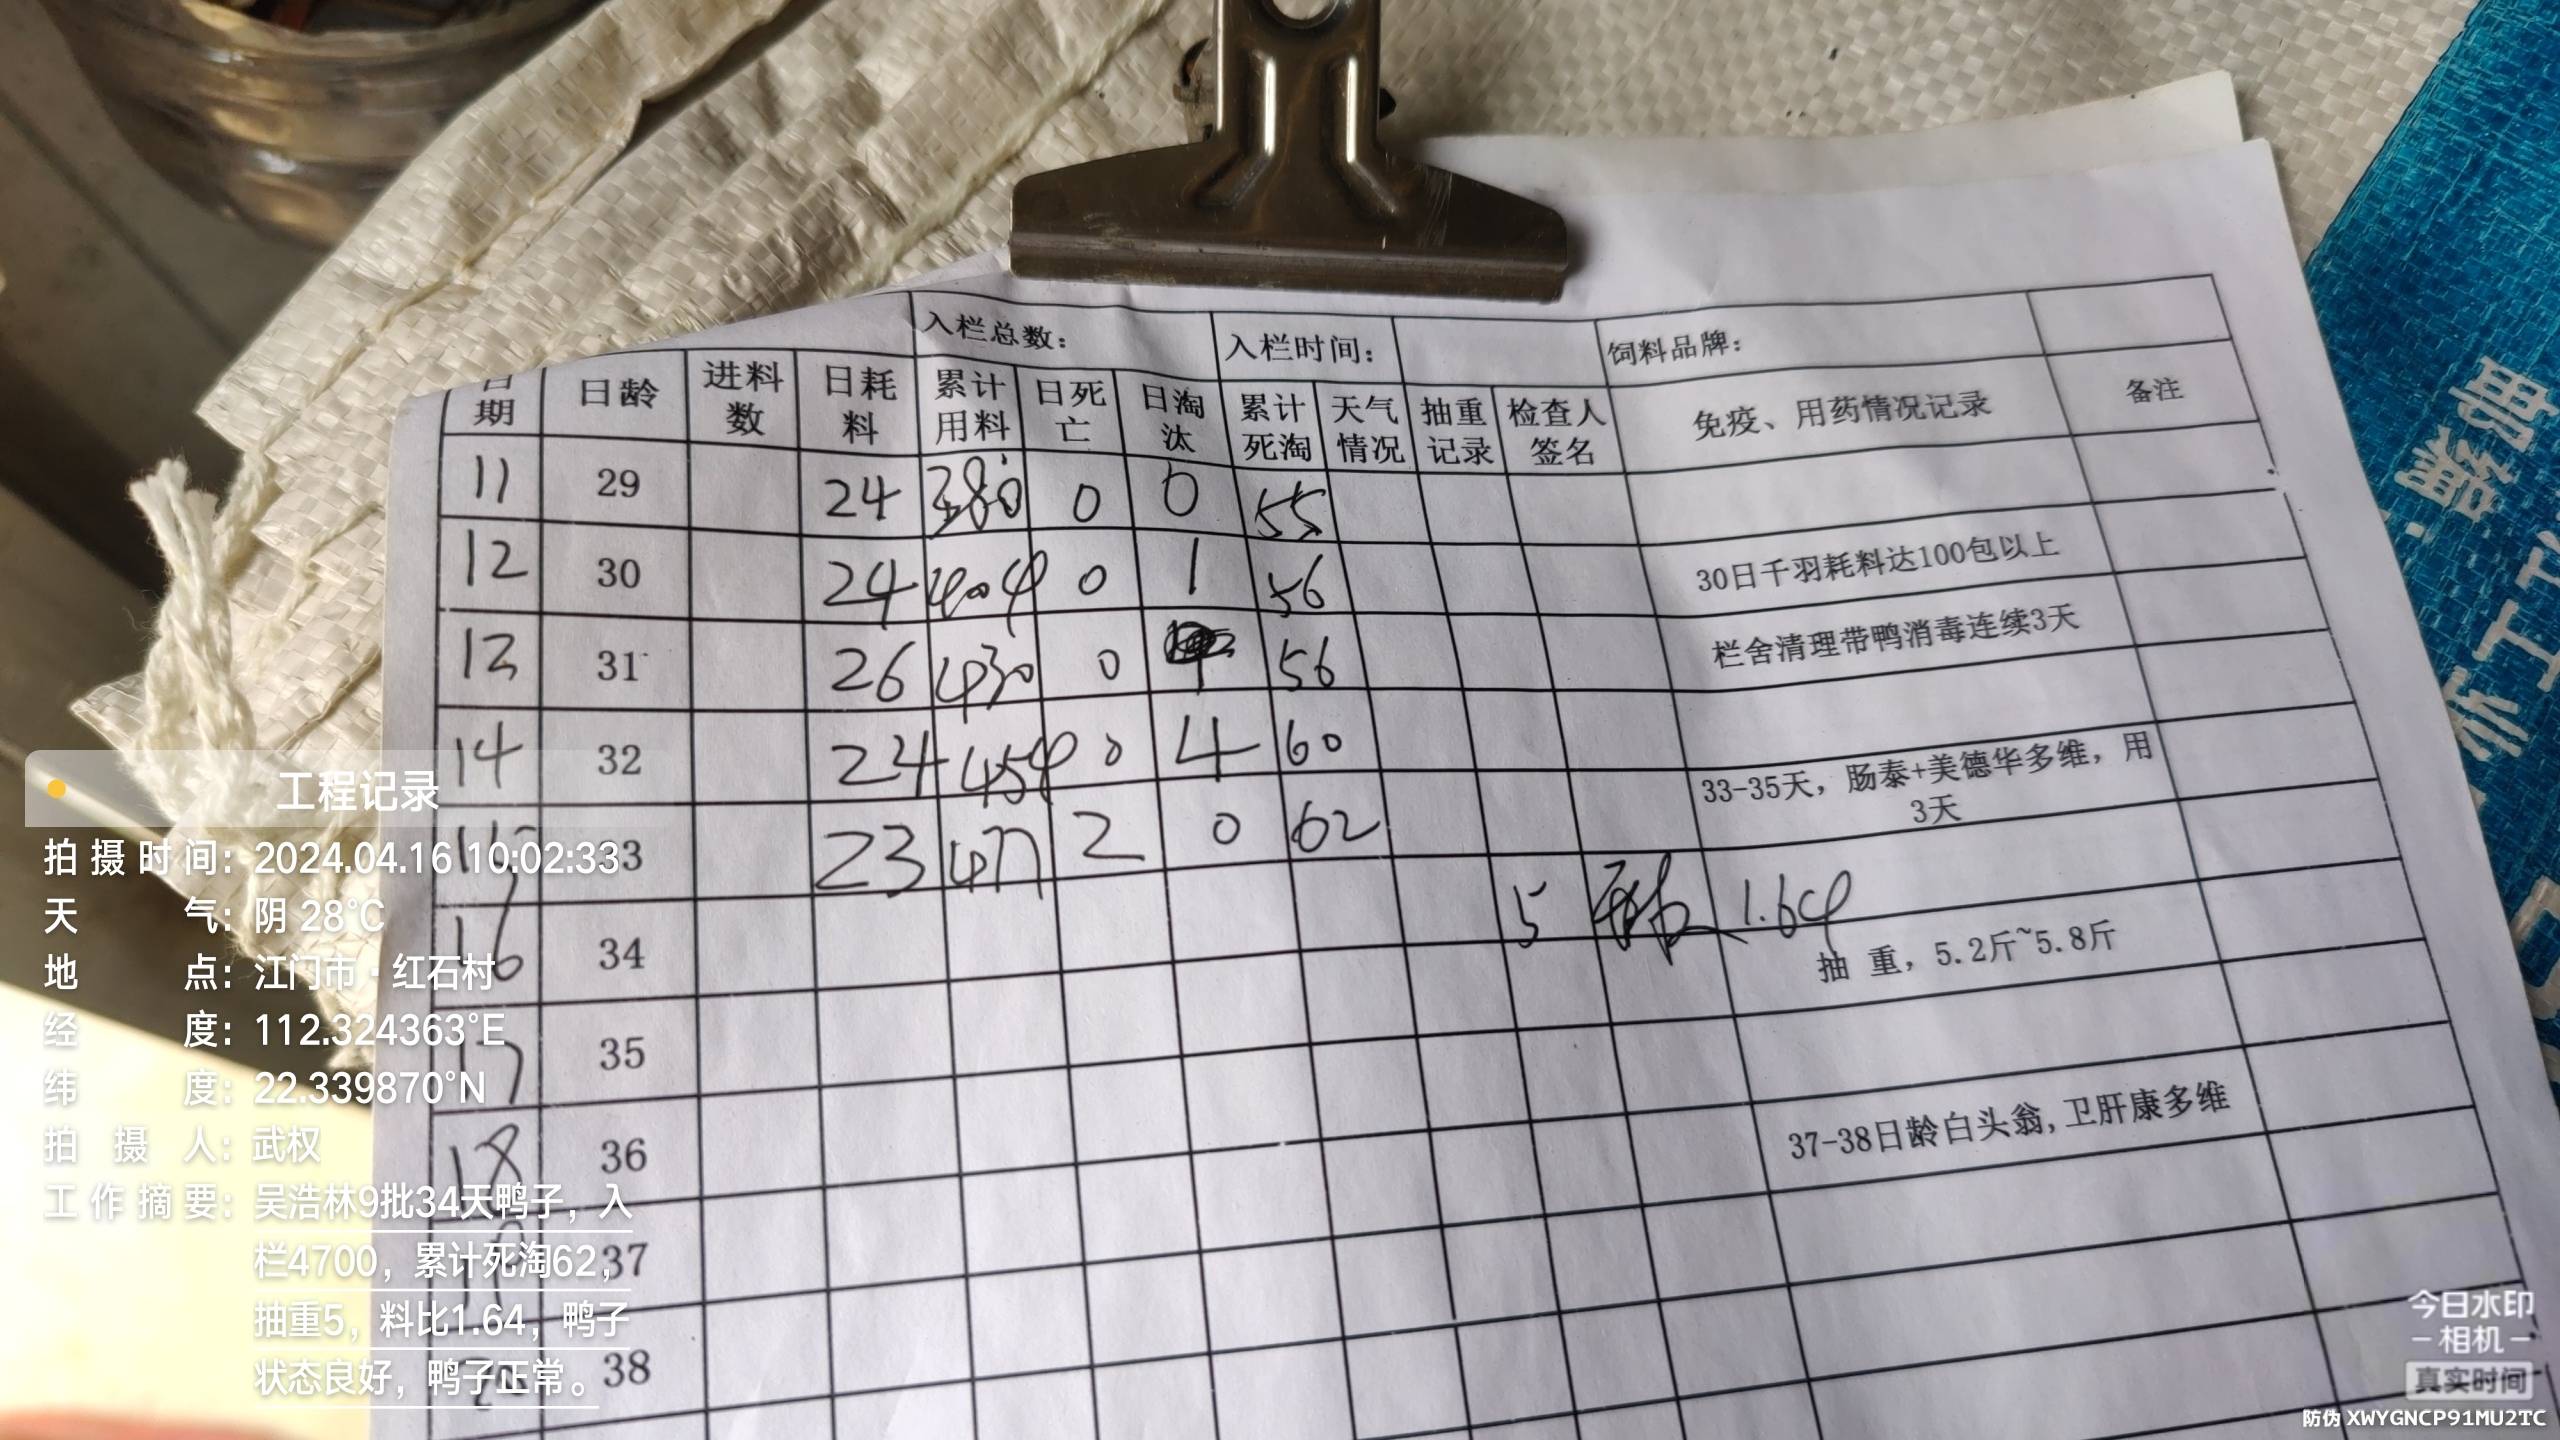 入栏总数： 入栏时间： 饲料品牌：
日期 日龄 进料数 日耗料 累计用料 日死亡 日淘汰 累计死淘 天气情况 抽重记录 检查人签名 免疫、用药情况记录 备注
11 29 24 380 0 0 55
12 30 24 404 0 1 56 30日千羽耗料达100包以上
13 31 26 430 0 56 栏舍清理带鸭消毒连续3天
14 32 24 454 0 4 60
15 33 23 477 2 0 62 33-35天，肠泰+美德华多维，用3天
16 34 5 1.64 抽 重，5.2斤~5.8斤
17 35
18 36 37-38日龄白头翁,卫肝康多维
37
20 38
工程记录
拍摄时间：2024.04.16 10:02:33
天气：阴 28℃
地点：江门市·红石村
经度：112.324363°E
纬度：22.339870°N
拍摄人：武权
工作摘要：吴浩林9批34天鸭子，入
栏4700，累计死淘62，
抽重5，料比1.64，鸭子
状态良好，鸭子正常。
今日水印
相机
真实时间
防伪 XWYGNCP91MU2TC